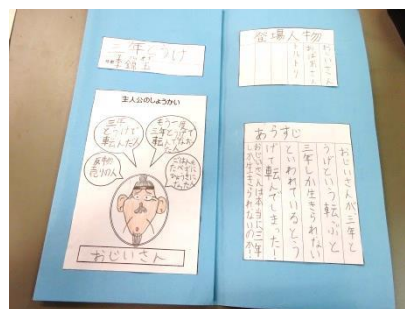 三年とうげ
李錦玉
主人公のしょうかい
三年
とうげで
転んだ
もう一度
三年とうげで
転んだ
おじいさん
登場人物
おじいさん
おばあさん
トルトリ
あらすじ
おじいさんが三年と
うげという転ぶと
三年しか生きられない
といわれているとう
げで転んでしまった！
おじいさんは本当に三年
しか生きられないのか！